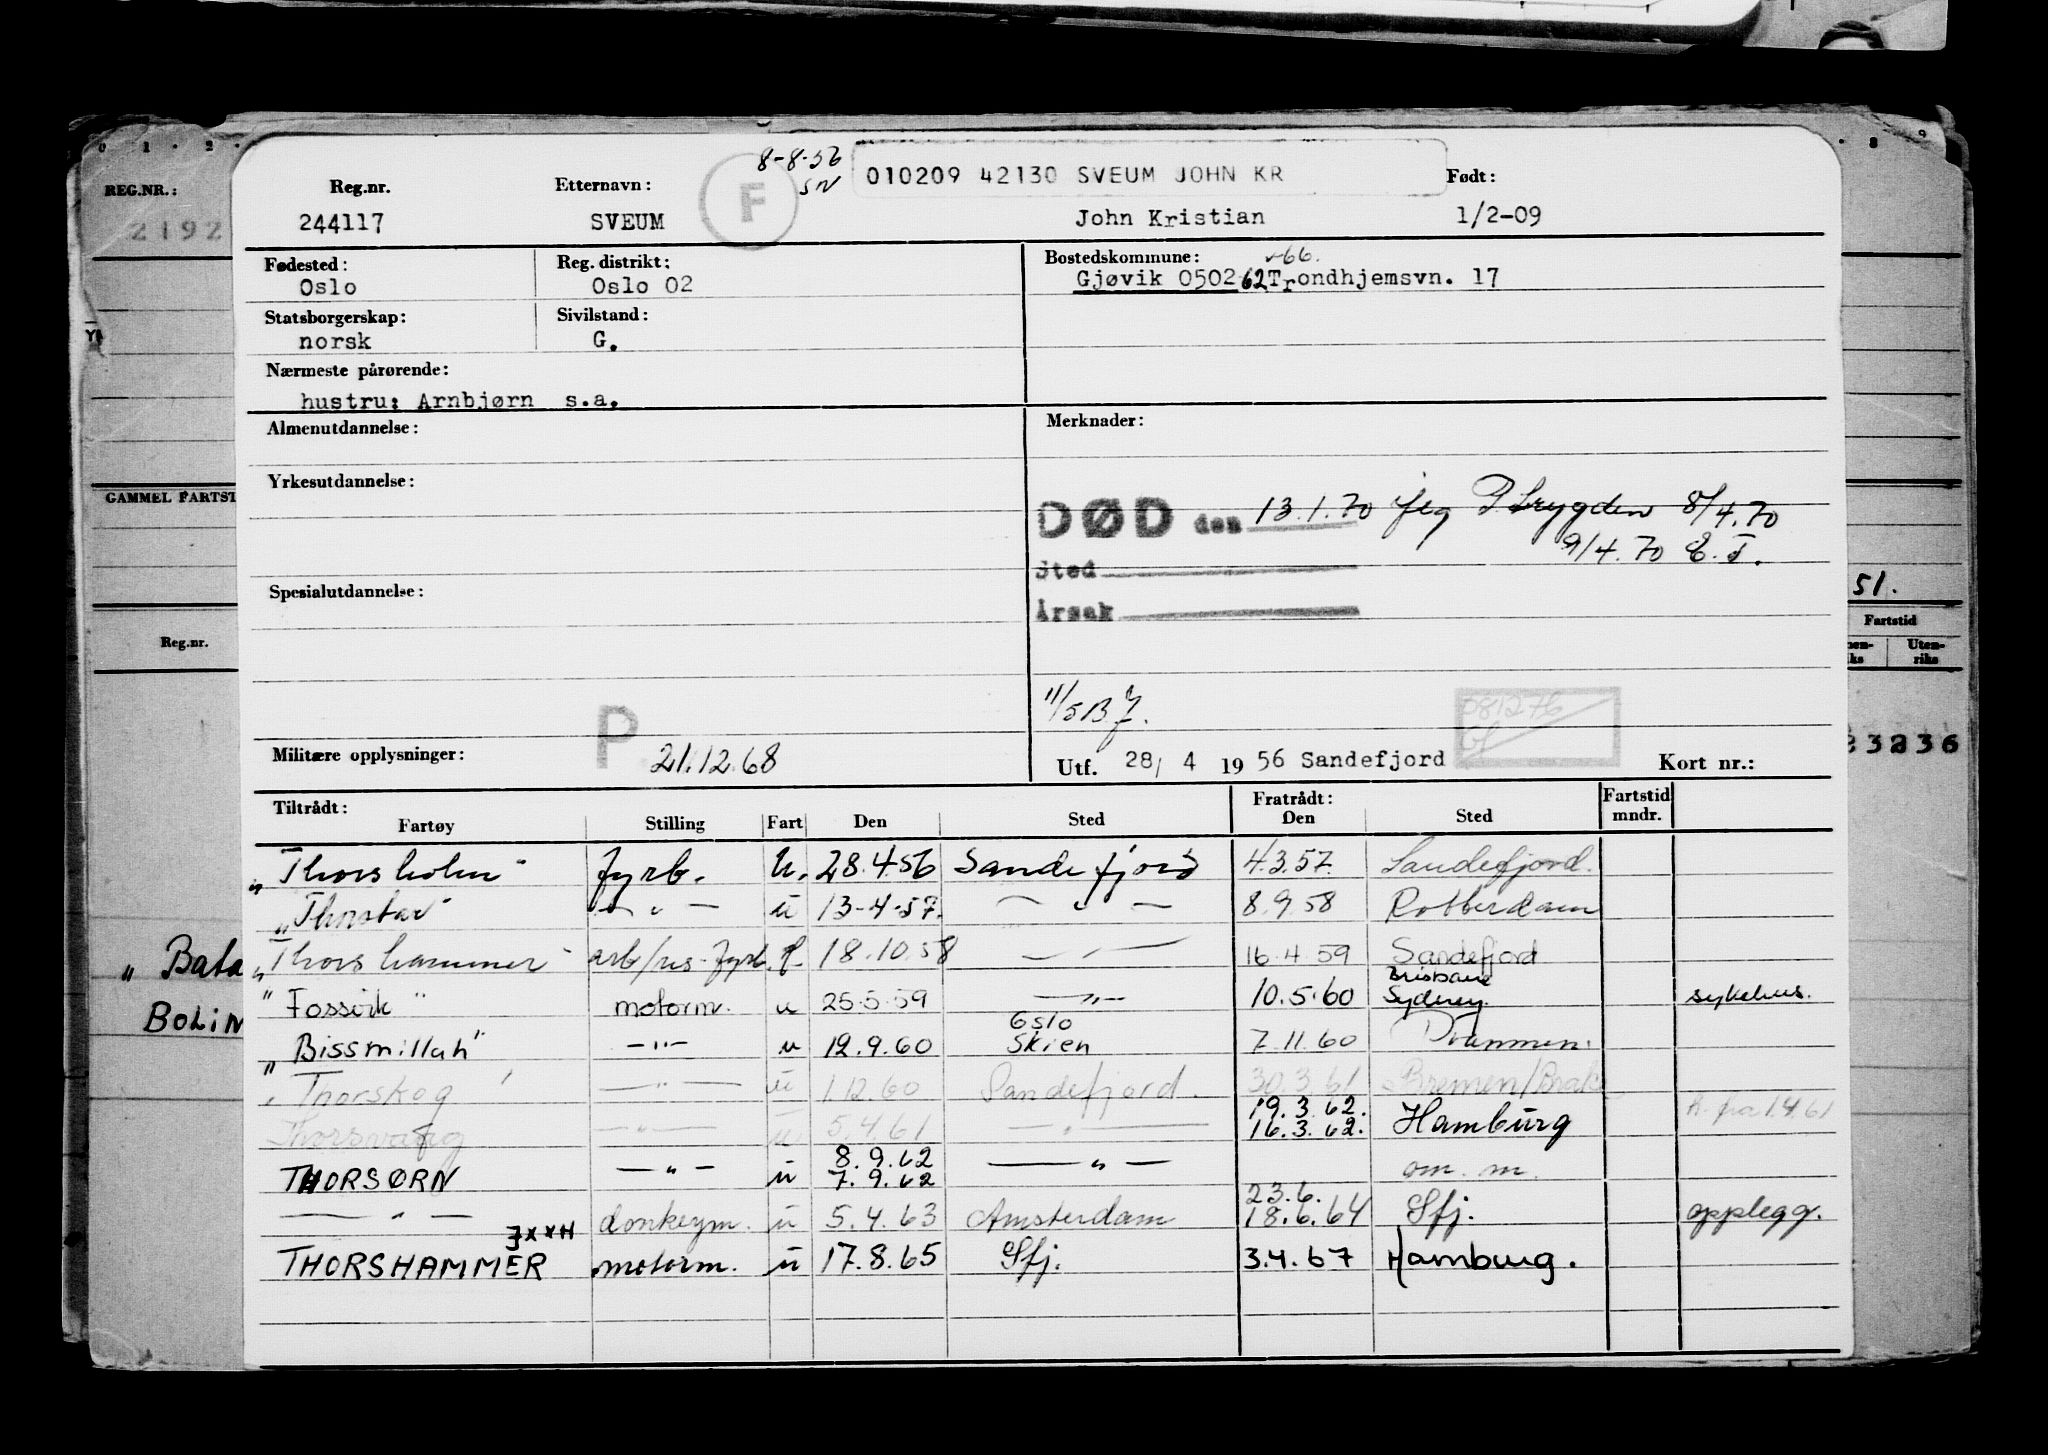 8-8-56
SN
010209 42130 SVEUM JOHN KR
REG.NR.:
Reg.nr.
Etternavn:
F
Født:
2192
244117
SVEUM
John Kristian
1/2-09
Fødested:
Reg. distrikt:
Bostedskommune:
-66.
Oslo
Oslo 02
Gjøvik 0502 62 Trondhjemsvn. 17
Statsborgerskap:
Sivilstand:
norsk
G.
Nærmeste pårørende:
hustru: Arnbjørn s.a.
Almenutdannelse:
Merknader:
Yrkesutdannelse:
GAMMEL FARTST
DØD den 13.1.70 flg Trygden 8/4.70
9/4.70 E.T.
Sted
Årsak
Spesialutdannelse:
51.
Reg.nr.
Fartstid
Uten-
riks
11/5 B.J.
081276
P
Militære opplysninger:
21.12.68
Utf. 28/ 4 1956 Sandefjord
Kort nr.:
3236
Tiltrådt:
Fratrådt:
Fartstid
mndr.
Fartøy
Stilling
Fart
Den
Sted
Den
Sted
"Thorsholm" fyrb. u. 28.4.56 Sandefjord 4.3.57. Sandefjord.
"Thorstar" — " — u 13-4-57. — " — 8.9.58 Rotterdam
"Thorshammer" arb/res-fyrb. f. 18.10.58 — " — 16.4.59 Sandefjord
Brisbane
"Fossvik" motorm. u 25.5.59 — " — 10.5.60 Sydney. sykehus.
Oslo
"Bissmillah" — " — u 12.9.60 Skien 7.11.60 Drammen.
"Thorskog" — " — u 1.12.60 Sandefjord. 30.3.61 Bremen/Brake
19.3.62.
h. fra 1.4.61
Thorsvang — " — u 5.4.61 — " — 16.3.62. Hamburg
8.9.62
THORSØRN — " — u 7.9.62 — " — om. m.
23.6.
— " — donkeym. u 5.4.63 Amsterdam 18.6.64 Sfj. opplegg.
JXXH
THORSHAMMER motorm. u 17.8.65 Sfj. 3.4.67 Hamburg.
" Bata
BOLIN